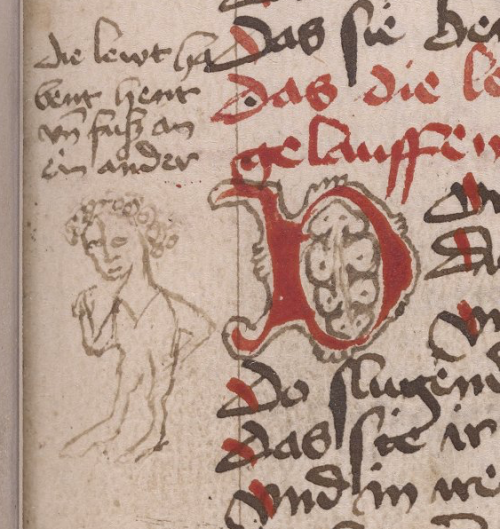 die lewt ha
bent hent
vn̄ fuſz an
ein ander
Das sie
das die le
gelauffen
D
Da
Do slugend
das sie ir
vnd in we